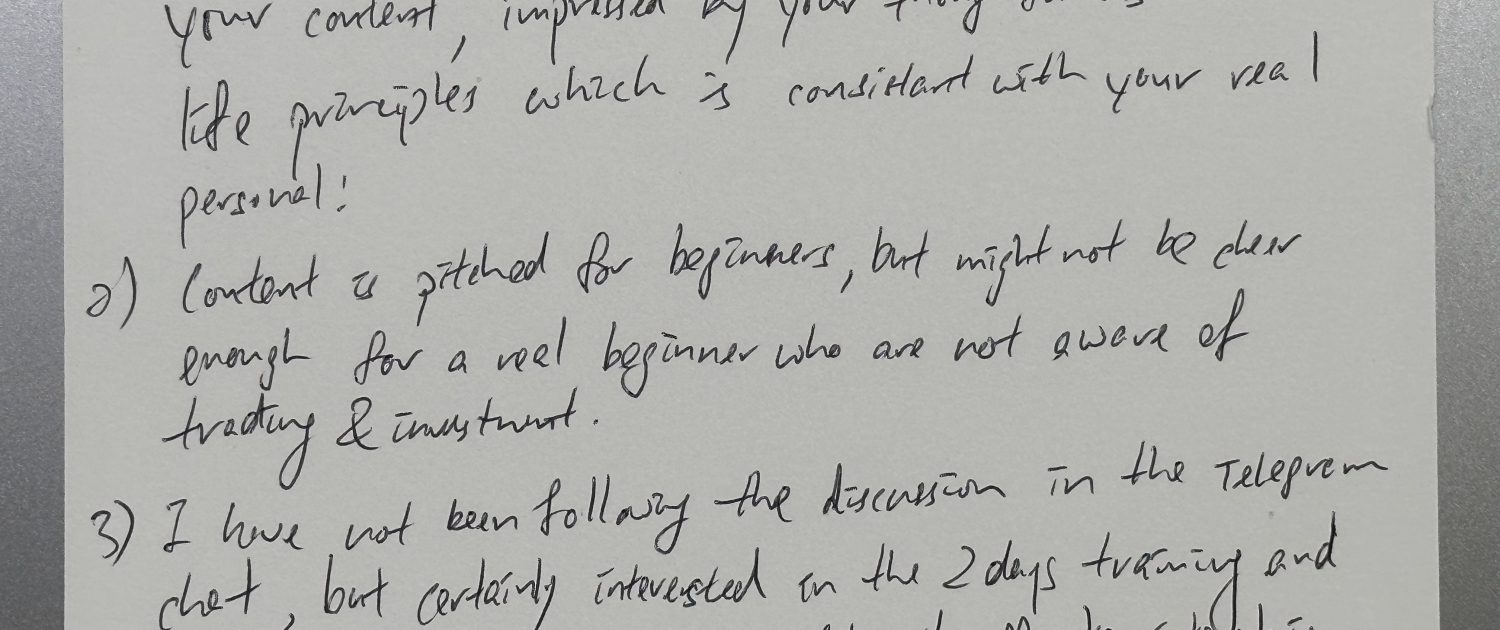 your content, impressed by your
life principles which is consistant with your real
personal!
2) Content is pitched for beginners, but might not be clear
enough for a real beginner who are not aware of
trading & investment.
3) I have not been following the discussion in the Telegram
chat, but certainly interested in the 2 days training and